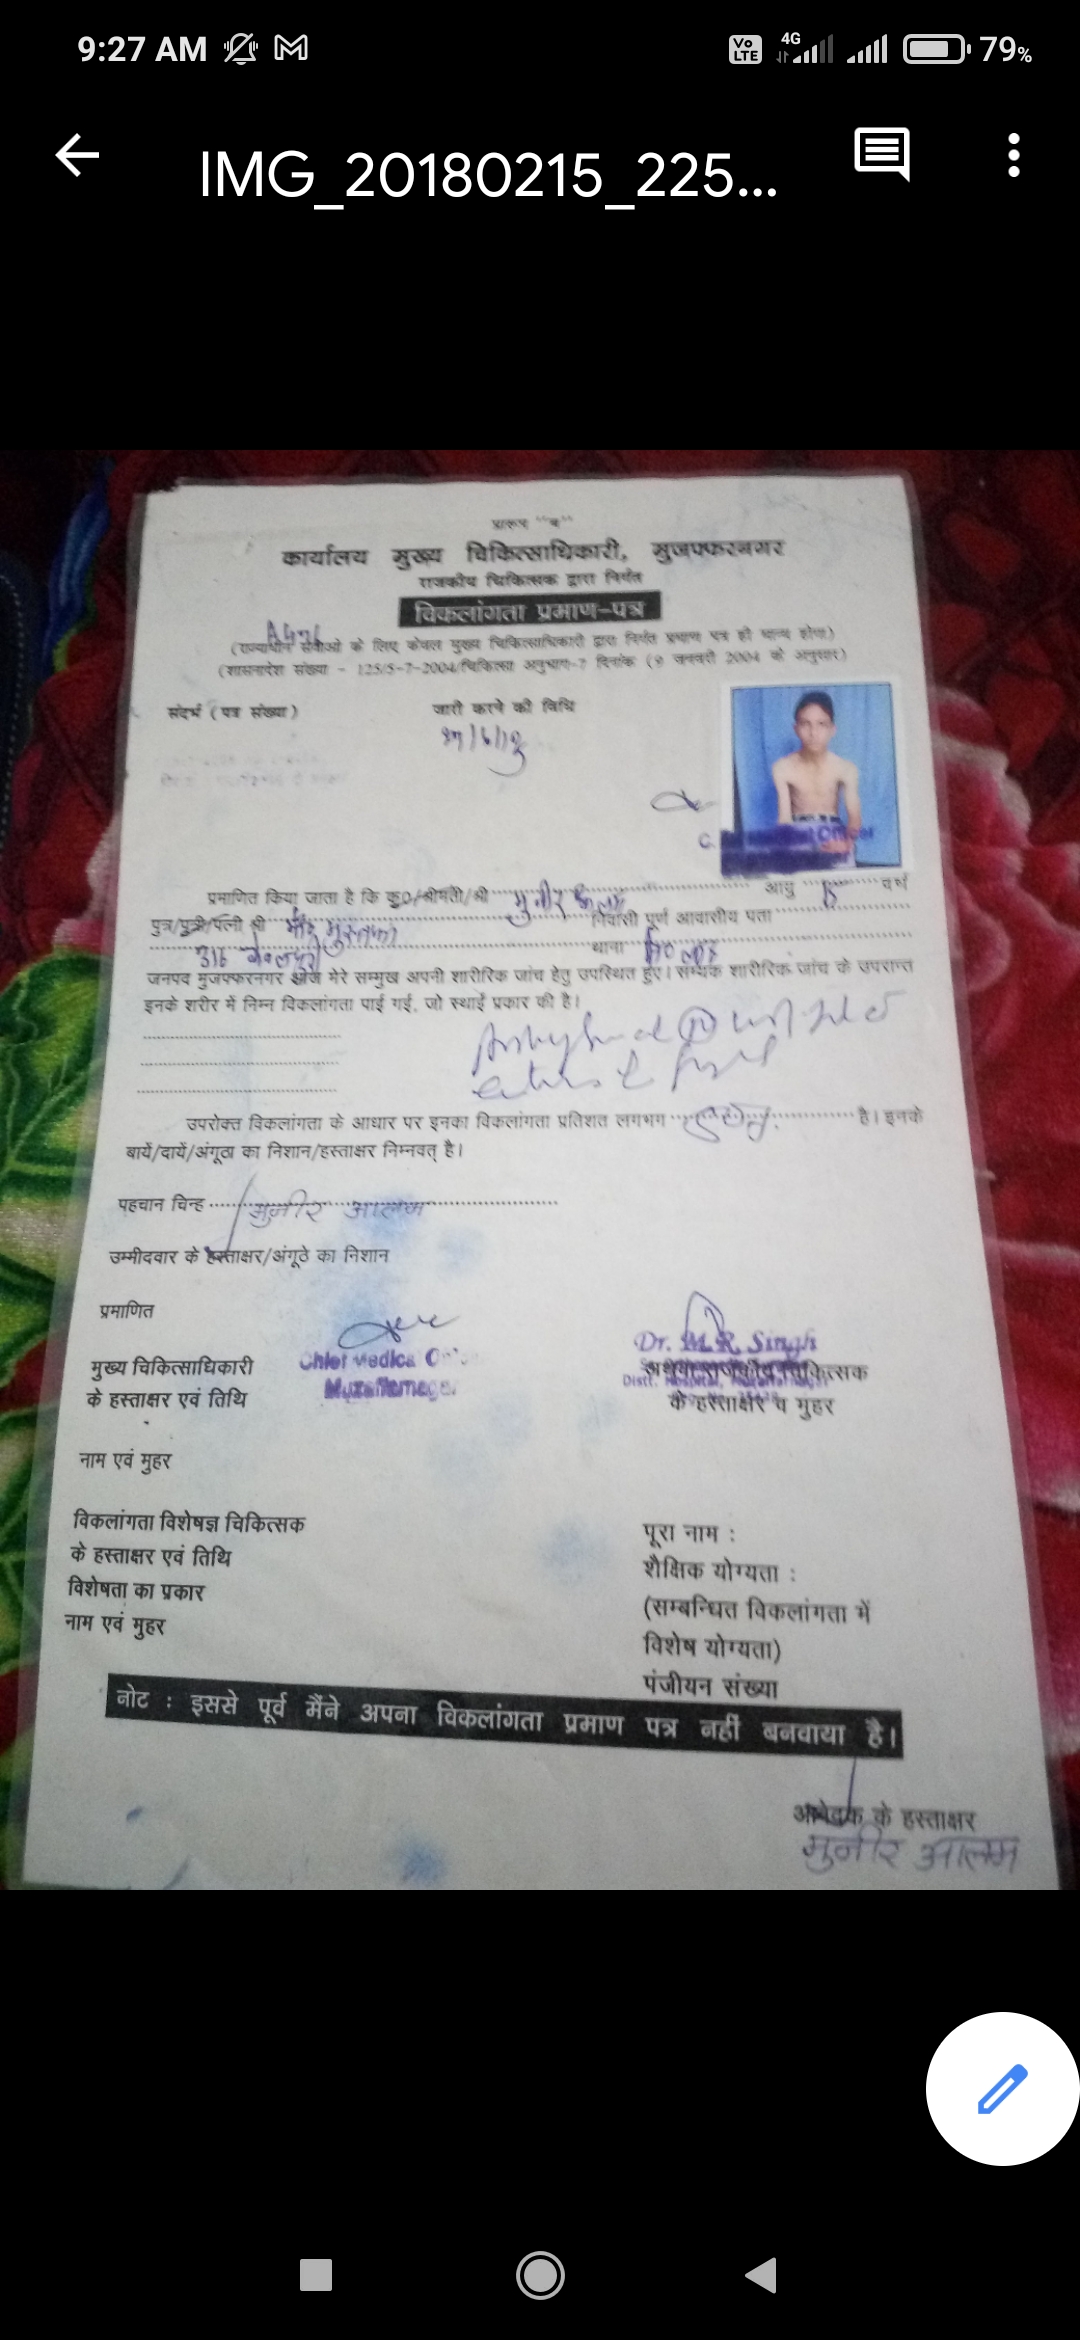 9:27 AM
Vo LTE 4G 79%
IMG_20180215_225...
प्रारूप "ब"
कार्यालय मुख्य चिकित्साधिकारी, मुजफ्फरनगर
राजकीय चिकित्सक द्वारा निर्गत
विकलांगता प्रमाण-पत्र
(राज्याधीन सेवाओं के लिए केवल मुख्य चिकित्साधिकारी द्वारा निर्गत प्रमाण पत्र ही मान्य होगा)
(शासनादेश संख्या - 125/5-7-2004/चिकित्सा अनुभाग-7 दिनांक (9 जनवरी 2004 के अनुसार)
संदर्भ (पत्र संख्या) जारी करने की तिथि
प्रमाणित किया जाता है कि कु0/श्रीमती/श्री मुनीर आलम आयु वर्ष
पुत्र/पुत्री/पत्नी श्री निवासी पूर्ण आवासीय पता
थाना
जनपद मुजफ्फरनगर आज मेरे सम्मुख अपनी शारीरिक जांच हेतु उपस्थित हुए। सम्यक शारीरिक जांच के उपरान्त
इनके शरीर में निम्न विकलांगता पाई गई, जो स्थाई प्रकार की है।
उपरोक्त विकलांगता के आधार पर इनका विकलांगता प्रतिशत लगभग है। इनके
बायें/दायें/अंगूठा का निशान/हस्ताक्षर निम्नवत् है।
पहचान चिन्ह मुनीर आलम
उम्मीदवार के हस्ताक्षर/अंगूठे का निशान
प्रमाणित
Dr. M. R. Singh
मुख्य चिकित्साधिकारी Chief Medical अथवा राजकीय चिकित्सक
के हस्ताक्षर एवं तिथि Muzaffarnagar के हस्ताक्षर व मुहर
नाम एवं मुहर
विकलांगता विशेषज्ञ चिकित्सक पूरा नाम :
के हस्ताक्षर एवं तिथि शैक्षिक योग्यता :
विशेषता का प्रकार (सम्बन्धित विकलांगता में
नाम एवं मुहर विशेष योग्यता)
पंजीयन संख्या
नोट : इससे पूर्व मैंने अपना विकलांगता प्रमाण पत्र नहीं बनवाया है।
आवेदक के हस्ताक्षर
मुनीर आलम